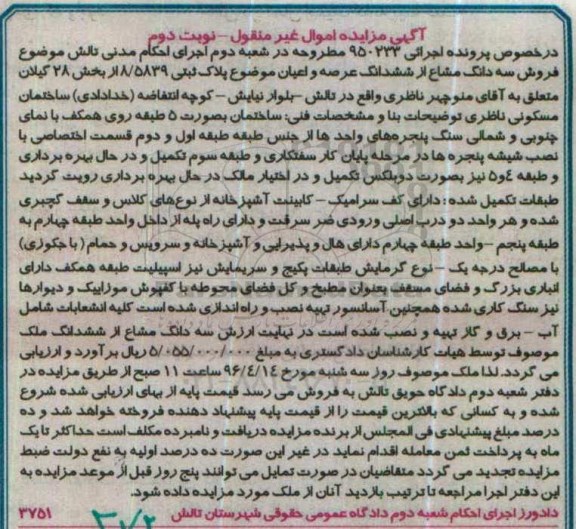 آگهی مزایده اموال غیر منقول – نوبت دوم
درخصوص پرونده اجرائی ۹۵۰۲۳۳ مطروحه در شعبه دوم اجرای احکام مدنی تالش موضوع
فروش سه دانگ مشاع از ششدانگ عرصه و اعیان موضوع پلاک ثبتی ۸/۵۸۳۹ از بخش ۲۸ گیلان
متعلق به آقای منوچهر ناظری واقع در تالش – بلوار نیایش – کوچه انتفاضه (خدادادی) ساختمان
مسکونی ناظری توضیحات بنا و مشخصات فنی: ساختمان بصورت ۵ طبقه روی همکف با نمای
جنوبی و شمالی سنگ پنجره‌های واحد ها از جنس طبقه طبقه اول و دوم قسمت اختصاصی با
نصب شیشه پنجره ها در مرحله پایان کار سفتکاری و طبقه سوم تکمیل و در حال بهره برداری
و طبقه ۴و۵ نیز بصورت دوبلکس تکمیل و در اختیار مالک در حال بهره برداری رویت گردید
طبقات تکمیل شده : دارای کف سرامیک – کابینت آشپزخانه از نوع‌های کلاس و سقف گچبری
شده و هر واحد دو درب اصلی ورودی ضر سرقت و دارای راه پله از داخل واحد طبقه چهارم به
طبقه پنجم – واحد طبقه چهارم دارای هال و پذیرایی و آشپزخانه و سرویس و حمام ( با جکوزی)
با مصالح درجه یک – نوع گرمایش طبقات پکیج و سریمایش نیز اسپیلیت طبقه همکف دارای
انباری بزرگ و فضای مسقف بعنوان مطبخ و کل فضای محوطه با کفپوش موزاییک و دیوارها
نیز سنگ کاری شده همچنین آسانسور تهیه نصب و راه اندازی شده است کلیه انشعابات شامل
آب – برق و گاز تهیه و نصب شده است در نهایت ارزش سه دانگ مشاع از ششدانگ ملک
موصوف توسط هیات کارشناسان دادگستری به مبلغ ۵/۰۵۵/۰۰۰/۰۰۰ ریال برآورد و ارزیابی
می گردد. لذا ملک موصوف روز سه شنبه مورخ ۹۶/۴/۱۴ ساعت ۱۱ صبح از طریق مزایده در
دفتر شعبه دوم دادگاه حویق تالش به فروش می رسد قیمت پایه از بهای ارزیابی شده شروع
شده و به کسانی که بالاترین قیمت را از قیمت پایه پیشنهاد دهنده فروخته خواهد شد و ده
درصد مبلغ پیشنهادی فی المجلس از برنده مزایده دریافت و نامبرده مکلف است حداکثر تا یک
ماه به پرداخت ثمن معامله اقدام نماید در غیر این صورت ده درصد اولیه به نفع دولت ضبط
مزایده تجدید می گردد متقاضیان در صورت تمایل می توانند پنج روز قبل از موعد مزایده به
این دفتر اجرا مراجعه تا ترتیب بازدید آنان از ملک مورد مزایده داده شود.
دادورز اجرای احکام شعبه دوم دادگاه عمومی حقوقی شهرستان تالش ۳۷۵۱